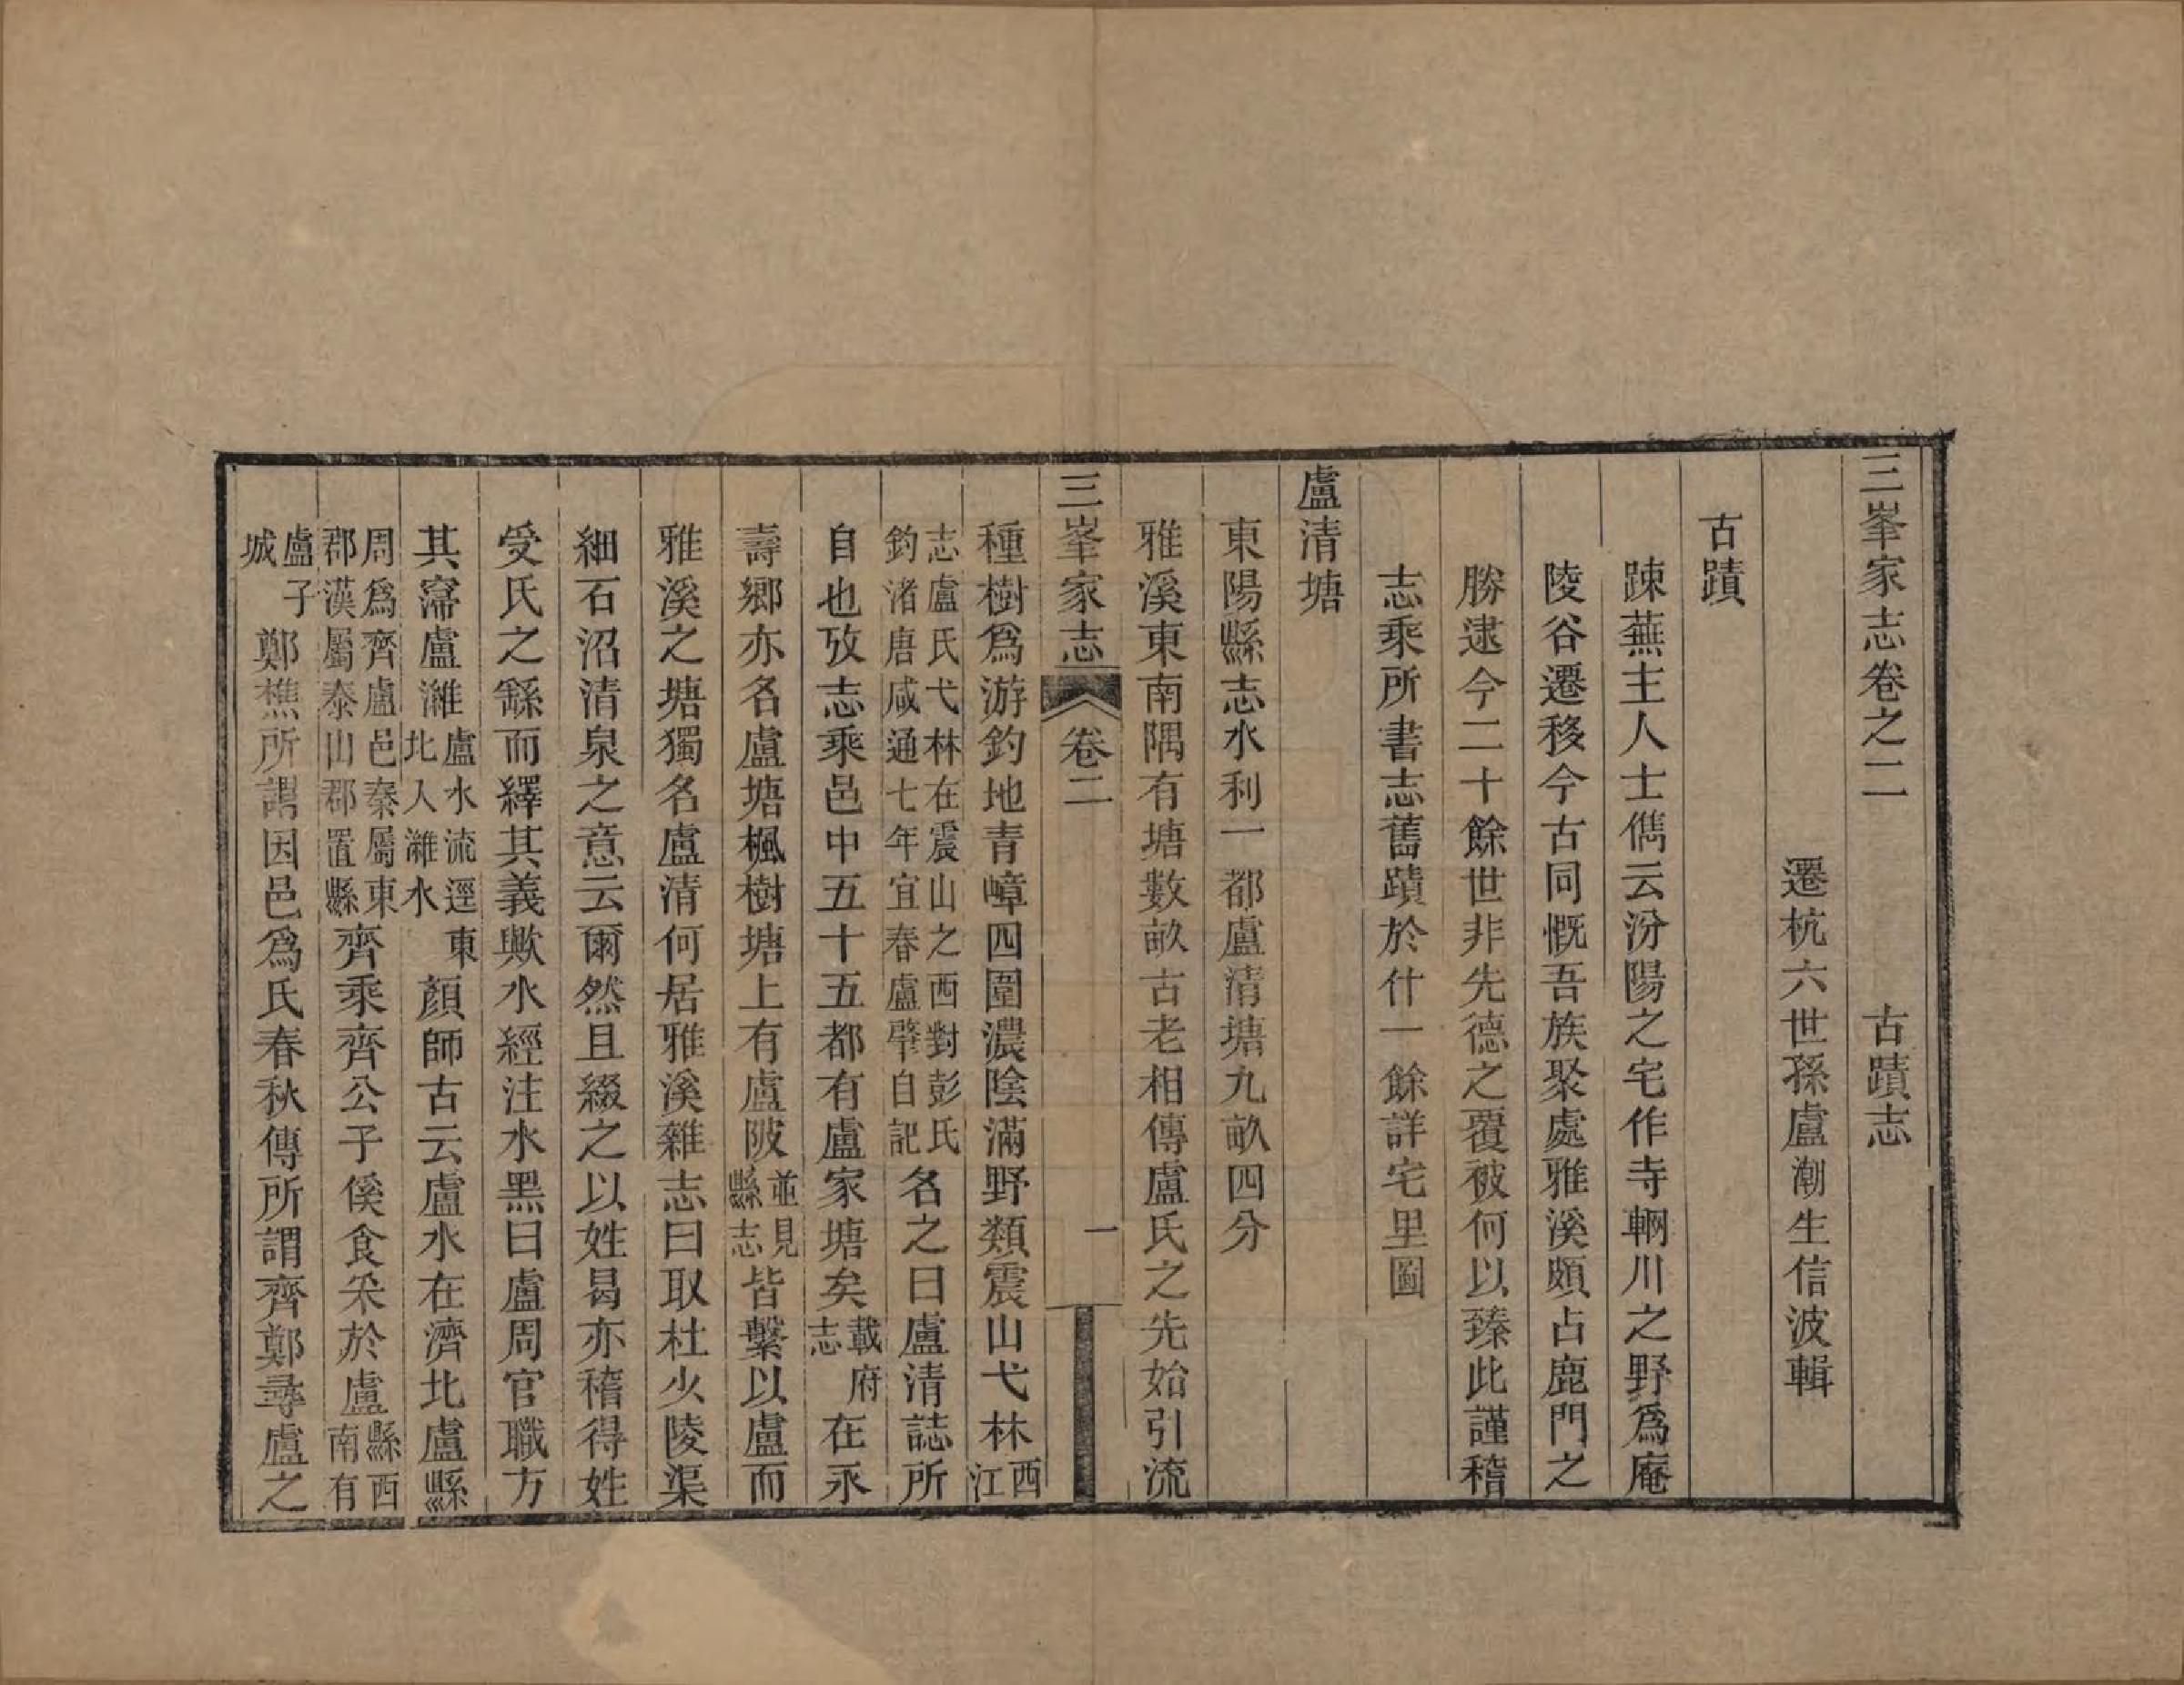 三峯家志卷之二　　　　古蹟志
遷杭六世孫盧潮生信波輯
古蹟
踈蕪主人士儁云汾陽之宅作寺輞川之野爲庵
陵谷遷移今古同慨吾族聚處雅溪頗占鹿門之
勝逮今二十餘世非先德之覆被何以臻此謹稽
志乘所書志舊蹟於什一餘詳宅里圖
盧清塘
東陽縣志水利一都盧清塘九畝四分
雅溪東南隅有塘數畝古老相傳盧氏之先始引流
三峯家志　卷二　一
種樹爲游釣地青嶂四圍濃陰滿野類震山弋林西江
志盧氏弋林在震山之西對彭氏釣渚唐咸通七年宜春盧肇自記名之曰盧清誌所
自也攷志乘邑中五十五都有盧家塘矣載府志在永
壽鄉亦名盧塘楓樹塘上有盧陂並見縣志皆繫以盧而
雅溪之塘獨名盧清何居雅溪雜志曰取杜少陵渠
細石沼清泉之意云爾然且綴之以姓曷亦稽得姓
受氏之繇而繹其義歟水經注水黑曰盧周官職方
其寖盧濰盧水流逕東北入濰水顏師古云盧水在濟北盧縣
周爲齊盧邑秦屬東郡漢屬泰山郡置縣齊乘齊公子傒食采於盧縣西南有
盧子城鄭樵所謂因邑爲氏春秋傳所謂齊鄭尋盧之